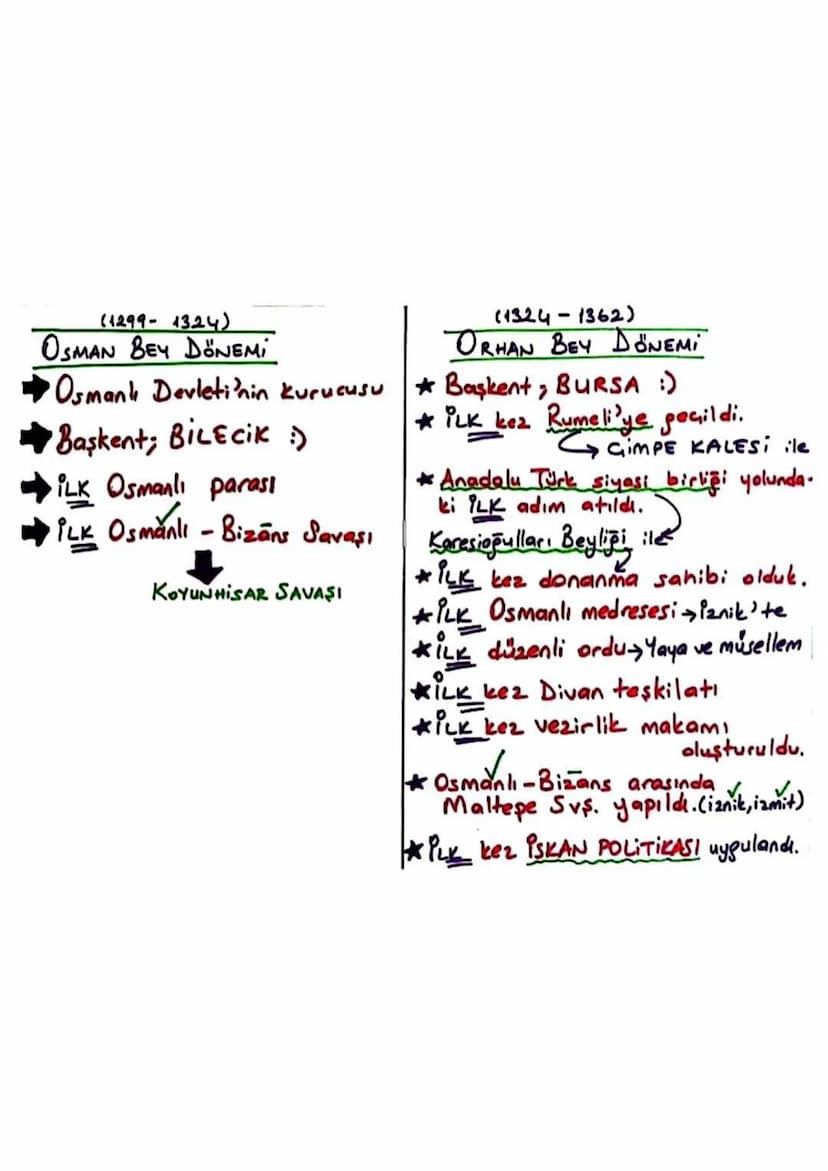 (1299- 1324)
OSMAN BEY DÖNEMİ
Osmanlı Devleti'nin kurucusu
Başkent; BİLECİK :)
İLK Osmanlı parası
İLK Osmanlı - Bizans Savaşı
KOYUNHİSAR SAVAŞI
(1324 - 1362)
ORHAN BEY DÖNEMİ
Başkent; BURSA :)
İLK kez Rumeli'ye geçildi.
ÇİMPE KALESİ ile
Anadolu Türk siyasi birliği yolunda-
ki İLK adım atıldı.
Karesioğulları Beyliği ile
İLK kez donanma sahibi olduk.
İLK Osmanlı medresesi → İznik'te
İLK düzenli ordu → Yaya ve müsellem
İLK kez Divan teşkilatı
İLK kez vezirlik makamı
oluşturuldu.
Osmanlı - Bizans arasında
Maltepe Svş. yapıldı. (iznik, izmit)
İLK kez İSKAN POLİTİKASI uygulandı.